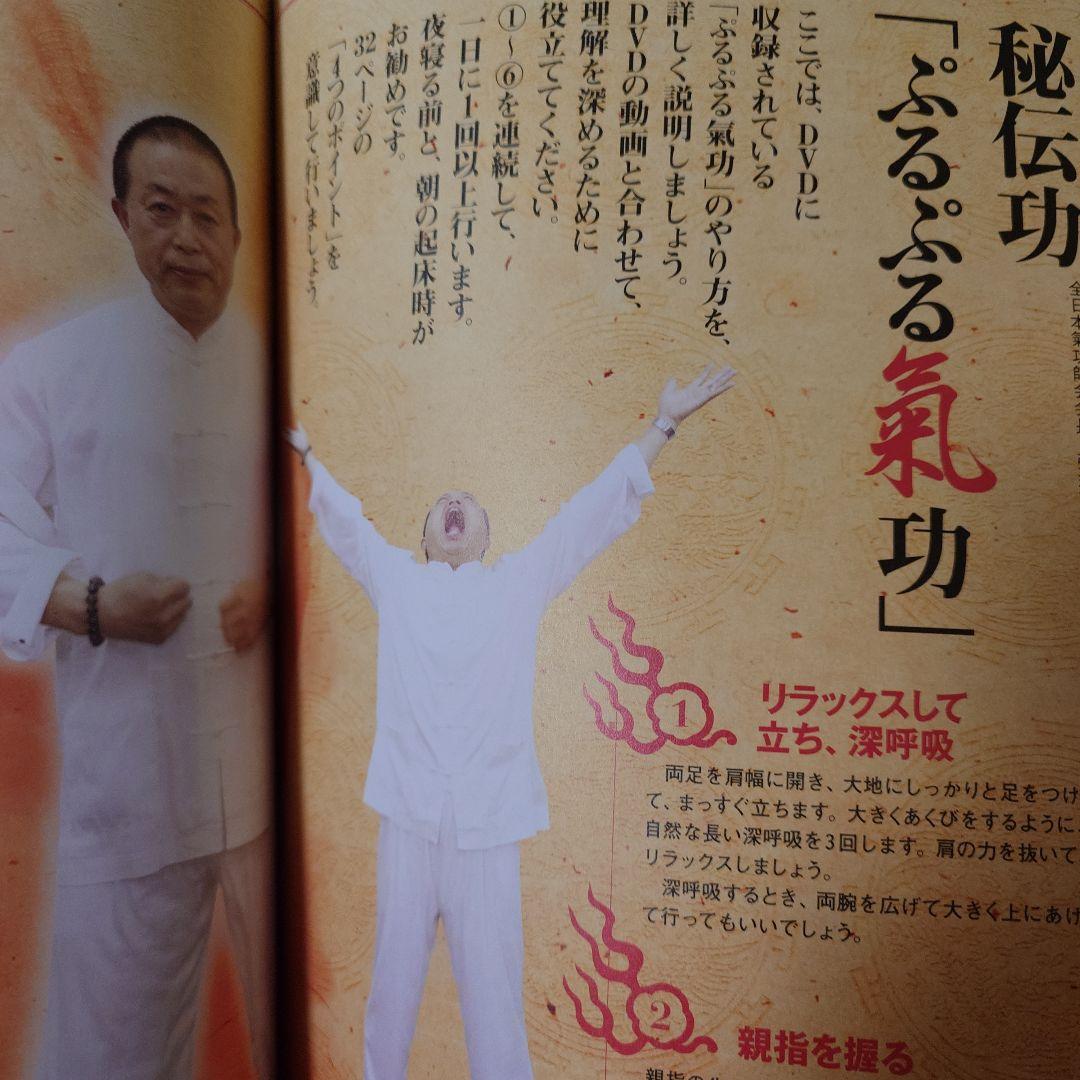 秘伝功
「ぷるぷる氣功」
全日本氣功師会
ここでは、DVDに
収録されている
「ぷるぷる氣功」のやり方を、
詳しく説明しましょう。
DVDの動画と合わせて、
理解を深めるために
役立ててください。
①〜⑥を連続して、
一日に1回以上行います。
夜寝る前と、朝の起床時が
お勧めです。
32ページの
「4つのポイント」を
意識して行いましょう。
1
リラックスして
立ち、深呼吸
両足を肩幅に開き、大地にしっかりと足をつけ
て、まっすぐ立ちます。大きくあくびをするように、
自然な長い深呼吸を3回します。肩の力を抜いて
リラックスしましょう。
深呼吸するとき、両腕を広げて大きく上にあげ
て行ってもいいでしょう。
2
親指を握る